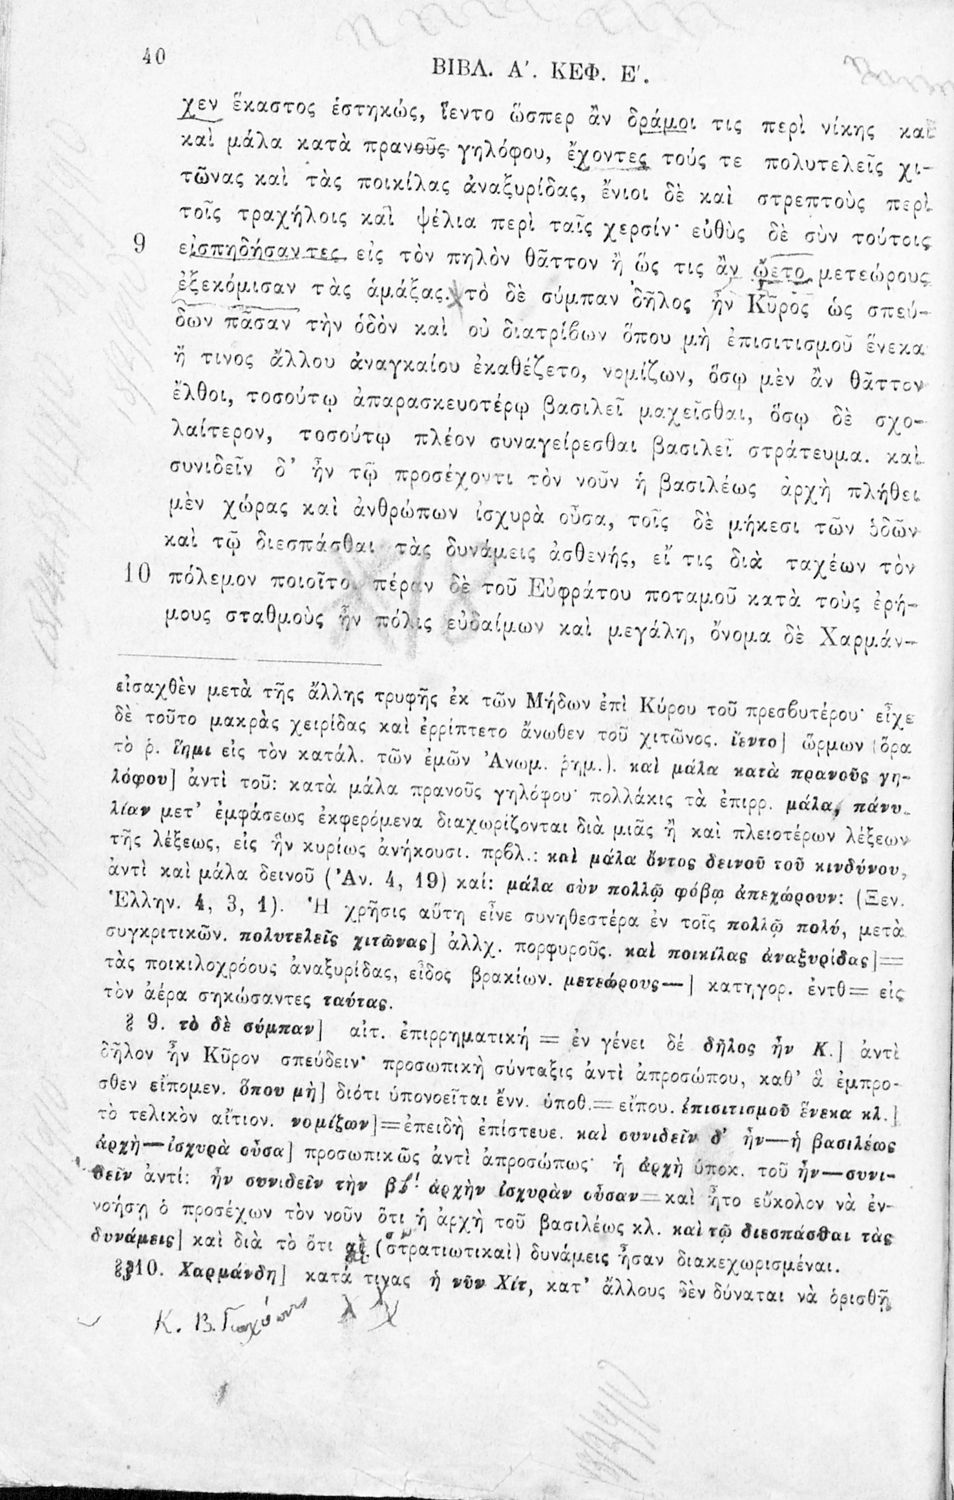 40
ΒΙΒΛ. Α΄. ΚΕΦ. Ε΄.
χεν ἕκαστος ἑστηκώς, ἵεντο ὥσπερ ἂν δράμοι τις περὶ νίκης καὶ
καὶ μάλα κατὰ πρανοῦς γηλόφου, ἔχοντες τούς τε πολυτελεῖς χι-
τῶνας καὶ τὰς ποικίλας ἀναξυρίδας, ἔνιοι δὲ καὶ στρεπτοὺς περὶ
τοῖς τραχήλοις καὶ ψέλια περὶ ταῖς χερσίν· εὐθὺς δὲ σὺν τούτοις
9 εἰσπηδήσαντες εἰς τὸν πηλὸν θᾶττον ἢ ὥς τις ἂν ᾤετο μετεώρους
ἐξεκόμισαν τὰς ἁμάξας. τὸ δὲ σύμπαν δῆλος ἦν Κῦρος ὡς σπεύ-
δων πᾶσαν τὴν ὁδὸν καὶ οὐ διατρίβων ὅπου μὴ ἐπισιτισμοῦ ἕνεκα
ἤ τινος ἄλλου ἀναγκαίου ἐκαθέζετο, νομίζων, ὅσῳ μὲν ἂν θᾶττον
ἔλθοι, τοσούτῳ ἀπαρασκευοτέρῳ βασιλεῖ μαχεῖσθαι, ὅσῳ δὲ σχο-
λαίτερον, τοσούτῳ πλέον συναγείρεσθαι βασιλεῖ στράτευμα. καὶ
συνιδεῖν δ᾽ ἦν τῷ προσέχοντι τὸν νοῦν ἡ βασιλέως ἀρχὴ πλήθει
μὲν χώρας καὶ ἀνθρώπων ἰσχυρὰ οὖσα, τοῖς δὲ μήκεσι τῶν ὁδῶν
καὶ τῷ διεσπάσθαι τὰς δυνάμεις ἀσθενής, εἴ τις διὰ ταχέων τὸν
10 πόλεμον ποιοῖτο. πέραν δὲ τοῦ Εὐφράτου ποταμοῦ κατὰ τοὺς ἐρή-
μους σταθμοὺς ἦν πόλις εὐδαίμων καὶ μεγάλη, ὄνομα δὲ Χαρμάν-
εἰσαχθὲν μετὰ τῆς ἄλλης τρυφῆς ἐκ τῶν Μήδων ἐπὶ Κύρου τοῦ πρεσβυτέρου· εἶχε
δὲ τοῦτο μακρὰς χειρίδας καὶ ἐρρίπτετο ἄνωθεν τοῦ χιτῶνος. ἵεντο] ὥρμων (ὅρα
τὸ ῥ. ἵημι εἰς τὸν κατάλ. τῶν ἐμῶν Ἀνωμ. ῥημ.). καὶ μάλα κατὰ πρανοῦς γη-
λόφου] ἀντὶ τοῦ: κατὰ μάλα πρανοῦς γηλόφου· πολλάκις τὰ ἐπιρρ. μάλα, πάνυ
λίαν μετ᾽ ἐμφάσεως ἐκφερόμενα διαχωρίζονται διὰ μιᾶς ἢ καὶ πλειοτέρων λέξεων
τῆς λέξεως, εἰς ἣν κυρίως ἀνήκουσι. πρβλ.: καὶ μάλα ὄντος δεινοῦ τοῦ κινδύνου,
ἀντὶ καὶ μάλα δεινοῦ (Ἀν. 4, 19) καί: μάλα σὺν πολλῷ φόβῳ ἀπεχώρουν: (Ξεν.
Ἑλλην. 4, 3, 1). Ἡ χρῆσις αὕτη εἶνε συνηθεστέρα ἐν τοῖς πολλῷ πολύ, μετὰ
συγκριτικῶν. πολυτελεῖς χιτῶνας] ἀλλχ. πορφυροῦς. καὶ ποικίλας ἀναξυρίδας]=
τὰς ποικιλοχρόους ἀναξυρίδας, εἶδος βρακίων. μετεώρους—] κατηγορ. ἐντθ= εἰς
τὸν ἀέρα σηκώσαντες ταύτας.
§ 9. τὸ δὲ σύμπαν] αἰτ. ἐπιρρηματικὴ = ἐν γένει δέ δῆλος ἦν Κ.] ἀντὶ
δῆλον ἦν Κῦρον σπεύδειν· προσωπικὴ σύνταξις ἀντὶ ἀπροσώπου, καθ᾽ ἃ ἐμπρο-
σθεν εἴπομεν. ὅπου μὴ] διότι ὑπονοεῖται ἔνν. ὑποθ.=εἴπου. ἐπισιτισμοῦ ἕνεκα κλ.]
τὸ τελικὸν αἴτιον. νομίζων]=ἐπειδὴ ἐπίστευε. καὶ συνιδεῖν δ᾽ ἦν—ἡ βασιλέως
ἀρχὴ—ἰσχυρὰ οὖσα] προσωπικῶς ἀντὶ ἀπροσώπως· ἡ ἀρχὴ ὑποκ. τοῦ ἦν—συνι-
δεῖν ἀντί: ἦν συνιδεῖν τὴν ἀρχὴν ἰσχυρὰν οὖσαν=καὶ ἦτο εὔκολον νὰ ἐν-
νοήσῃ ὁ προσέχων τὸν νοῦν ὅτι ἡ ἀρχὴ τοῦ βασιλέως κλ. καὶ τῷ διεσπάσθαι τὰς
δυνάμεις] καὶ διὰ τὸ ὅτι αἱ (στρατιωτικαὶ) δυνάμεις ἦσαν διακεχωρισμέναι.
§ 10. Χαρμάνδη] κατά τινας ἡ νῦν Χίτ, κατ᾽ ἄλλους δὲν δύναται νὰ ὁρισθῇ
Κ. Β.